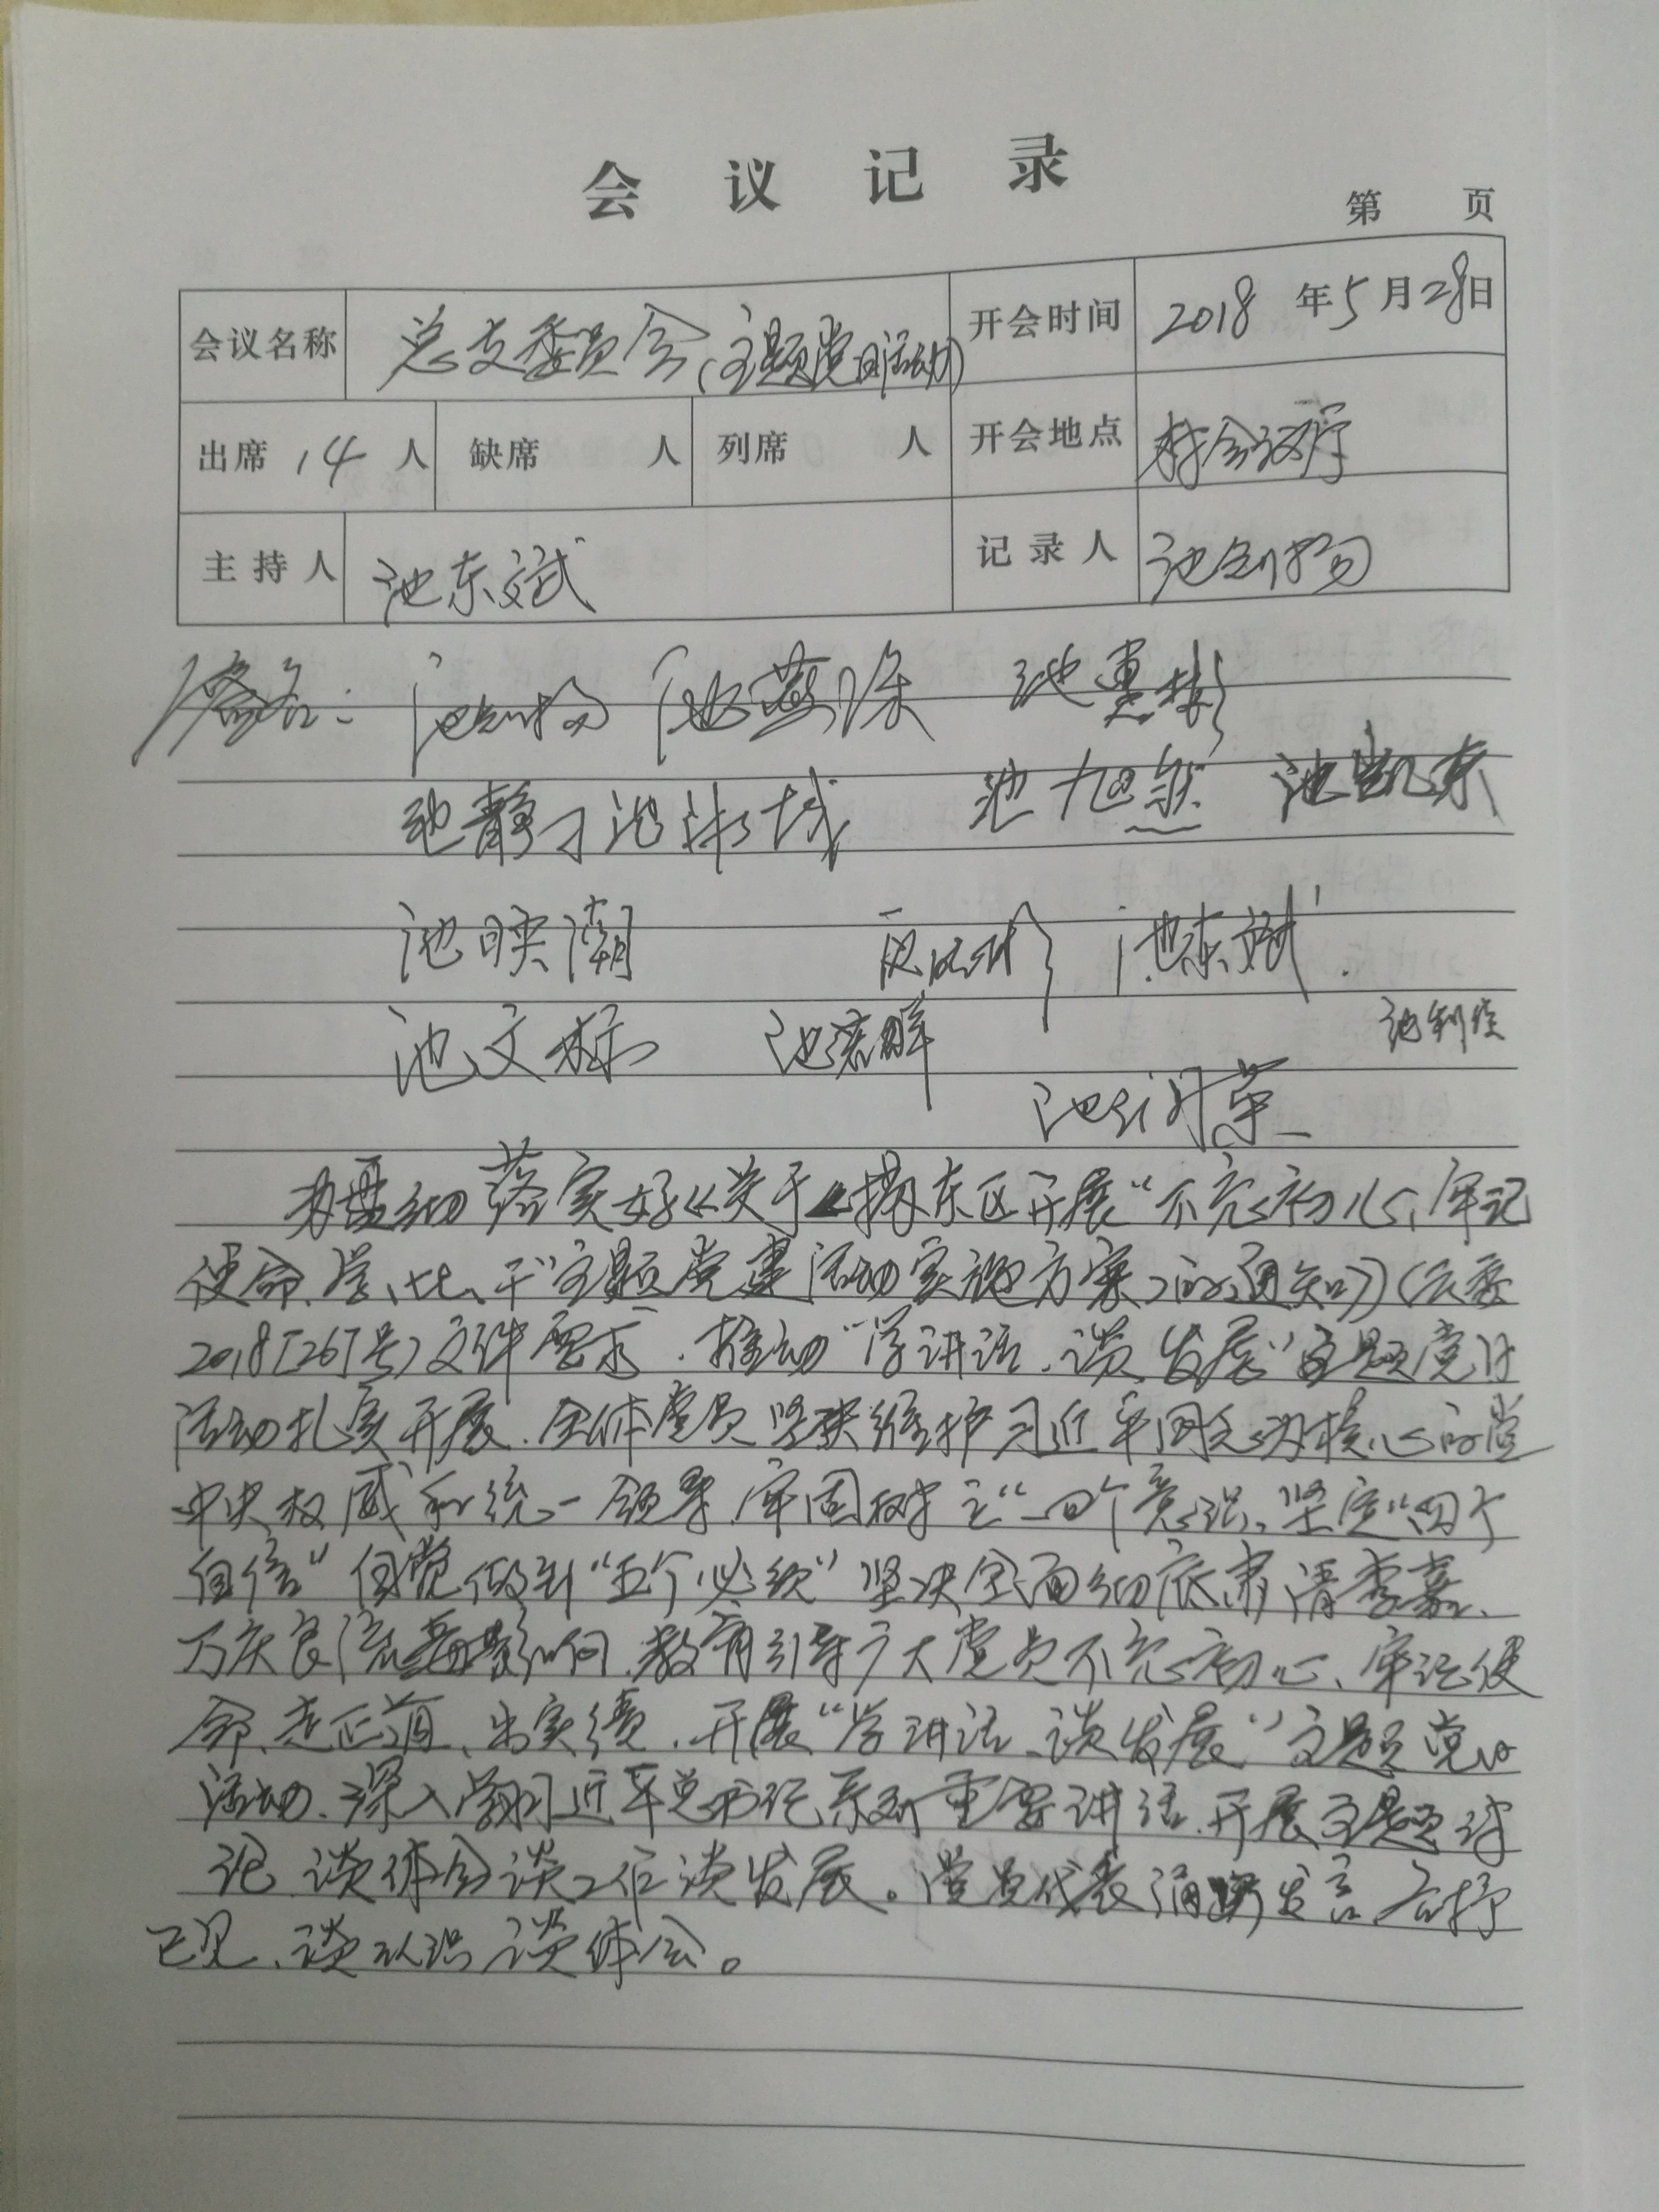 会议记录
第 页
会议名称 总支委员会(主题党日活动) 开会时间 2018年5月28日
出席 14 人 缺席 人 列席 人 开会地点 村会议厅
主持人 池东斌 记录人 池
签名: 池 池燕 池惠彬
池静 池 池旭然 池凯东
池映潮 池东斌
池文标 池 池
池 荣
为贯彻落实好《关于揭东区开展“不忘初心、牢记
使命、学、比、干”主题党建活动实施方案的通知》(云委
2018[26]号)文件要求,推动“学讲话、谈发展”主题党日
活动扎实开展,全体党员坚决维护习近平同志为核心的党
中央权威和统一领导,牢固树立“四个意识、坚定“四个
自信”自觉做到“五个必须”坚决全面彻底肃清李嘉、
万庆良流毒影响,教育引导广大党员不忘初心、牢记使
命、走正道、出实绩,开展“学讲话、谈发展”主题党日
活动,深入学习习近平总书记系列重要讲话,开展主题讨
论,谈体会谈工作谈发展。党员代表踊跃发言,各抒
己见、谈认识谈体会。